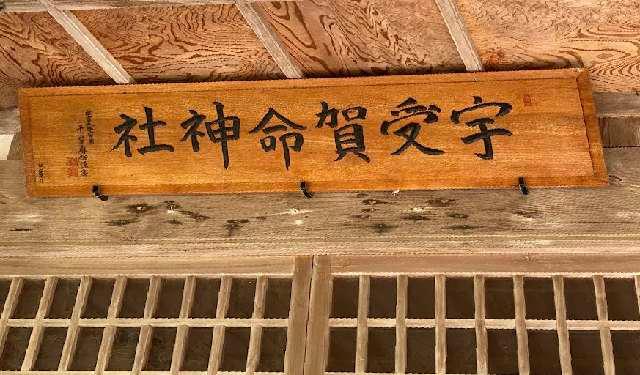 宇受賀命神社